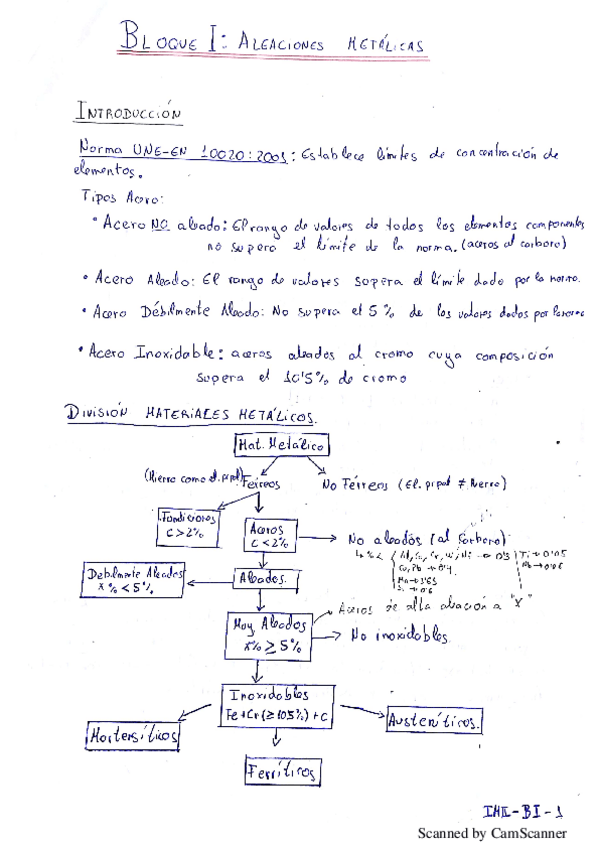 BLOQUE I: ALEACIONES METÁLICAS
INTRODUCCIÓN
Norma UNE-EN 10020:2001: Establece límites de concentración de
elementos.
Tipos Acero:
• Acero NO aleado: El rango de valores de todos los elementos componentes
no supera el límite de la norma. (aceros al carbono)
• Acero Aleado: El rango de valores supera el límite dado por la norma.
• Acero Débilmente Aleado: No supera el 5% de los valores dados por la norma
• Acero Inoxidable: aceros aleados al cromo cuya composición
supera el 10'5% de cromo
DIVISIÓN MATERIALES METÁLICOS.
Mat. Metálico
(Hierro como el. ppal) Férreos
No Férreos (El. ppal ≠ Hierro)
Fundiciones
C>2%
Aceros
C<2%
No aleados (al carbono)
Debilmente Aleados
x%<5%
Aleados.
Muy Aleados
x%≥5%
Aceros de alta aleación a "x"
No inoxidables
Inoxidables
Fe+Cr(≥10'5%)+C
Martensíticos
Austeníticos.
Ferríticos
IMI-BI-1
Scanned by CamScanner